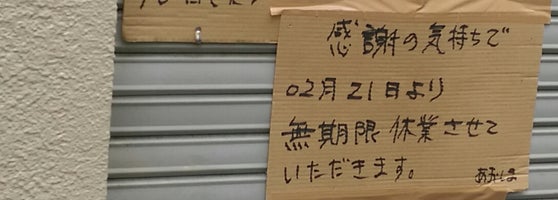 感謝の気持ちで
02月21日より
無期限休業させて
いただきます。